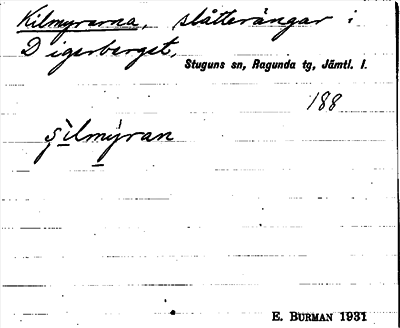 Kilmyrarna, slåtterängar i
Digerberget,
Stuguns sn, Ragunda tg, Jämtl. l.
188
şìlmýran
E. BURMAN 1931